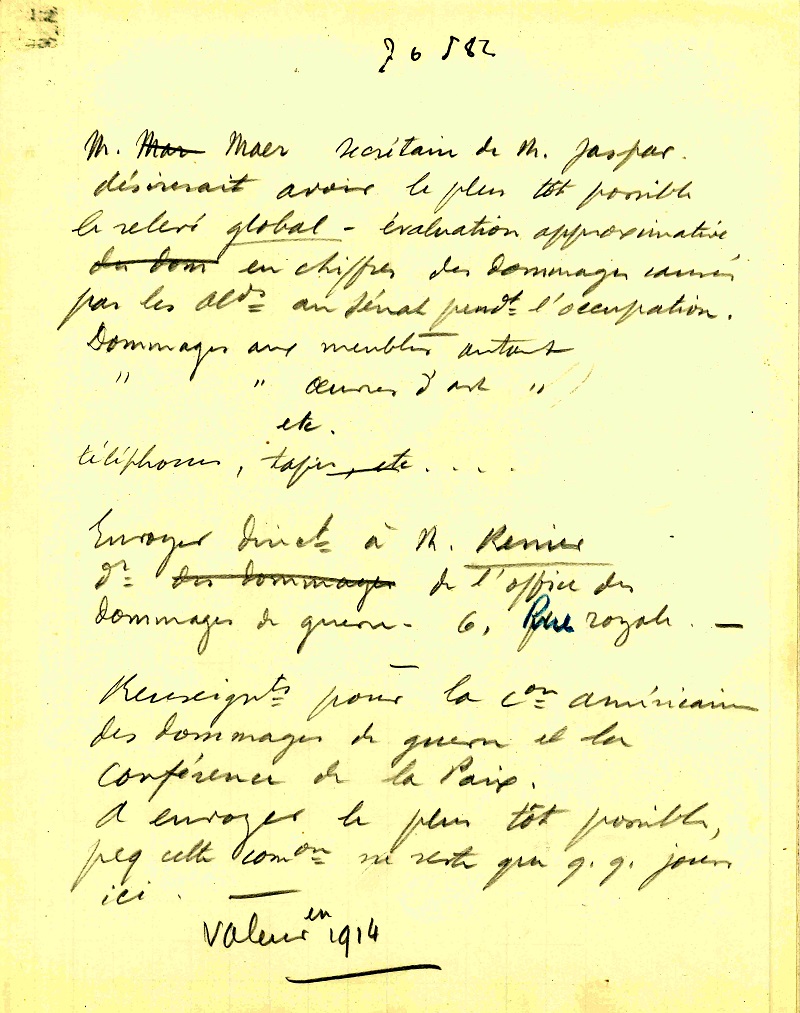 7 6 582
M. Mar Maer secrétaire de M. Jaspar.
désirerait avoir le plus tôt possible
le relevé global - évaluation approximative
des dom en chiffres des dommages causés
par les Alds au Sénat pendt l'occupation.
Dommages aux meubles autant
" " œuvres d'art "
etc.
téléphones, tapis, etc. ...
Envoyer directt à M. Renier
dr des dommages de l'office des
dommages de guerre - 6, Rue royale. —
Renseignts pour la con américaine
des dommages de guerre et la
Conférence de la Paix.
A envoyer le plus tôt possible,
pcq cette comon ne reste que q.q. jours
ici.
Valeur en 1914